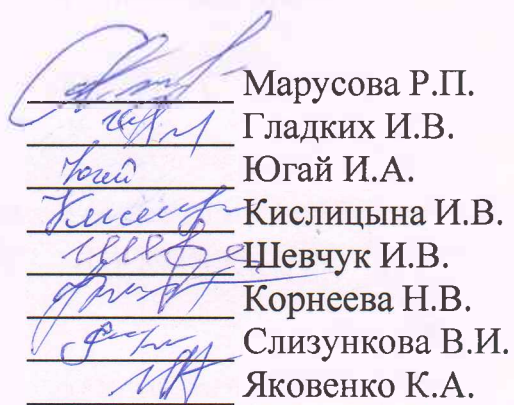 Марусова Р.П.
Гладких И.В.
Югай И.А.
Кислицына И.В.
Шевчук И.В.
Корнеева Н.В.
Слизункова В.И.
Яковенко К.А.